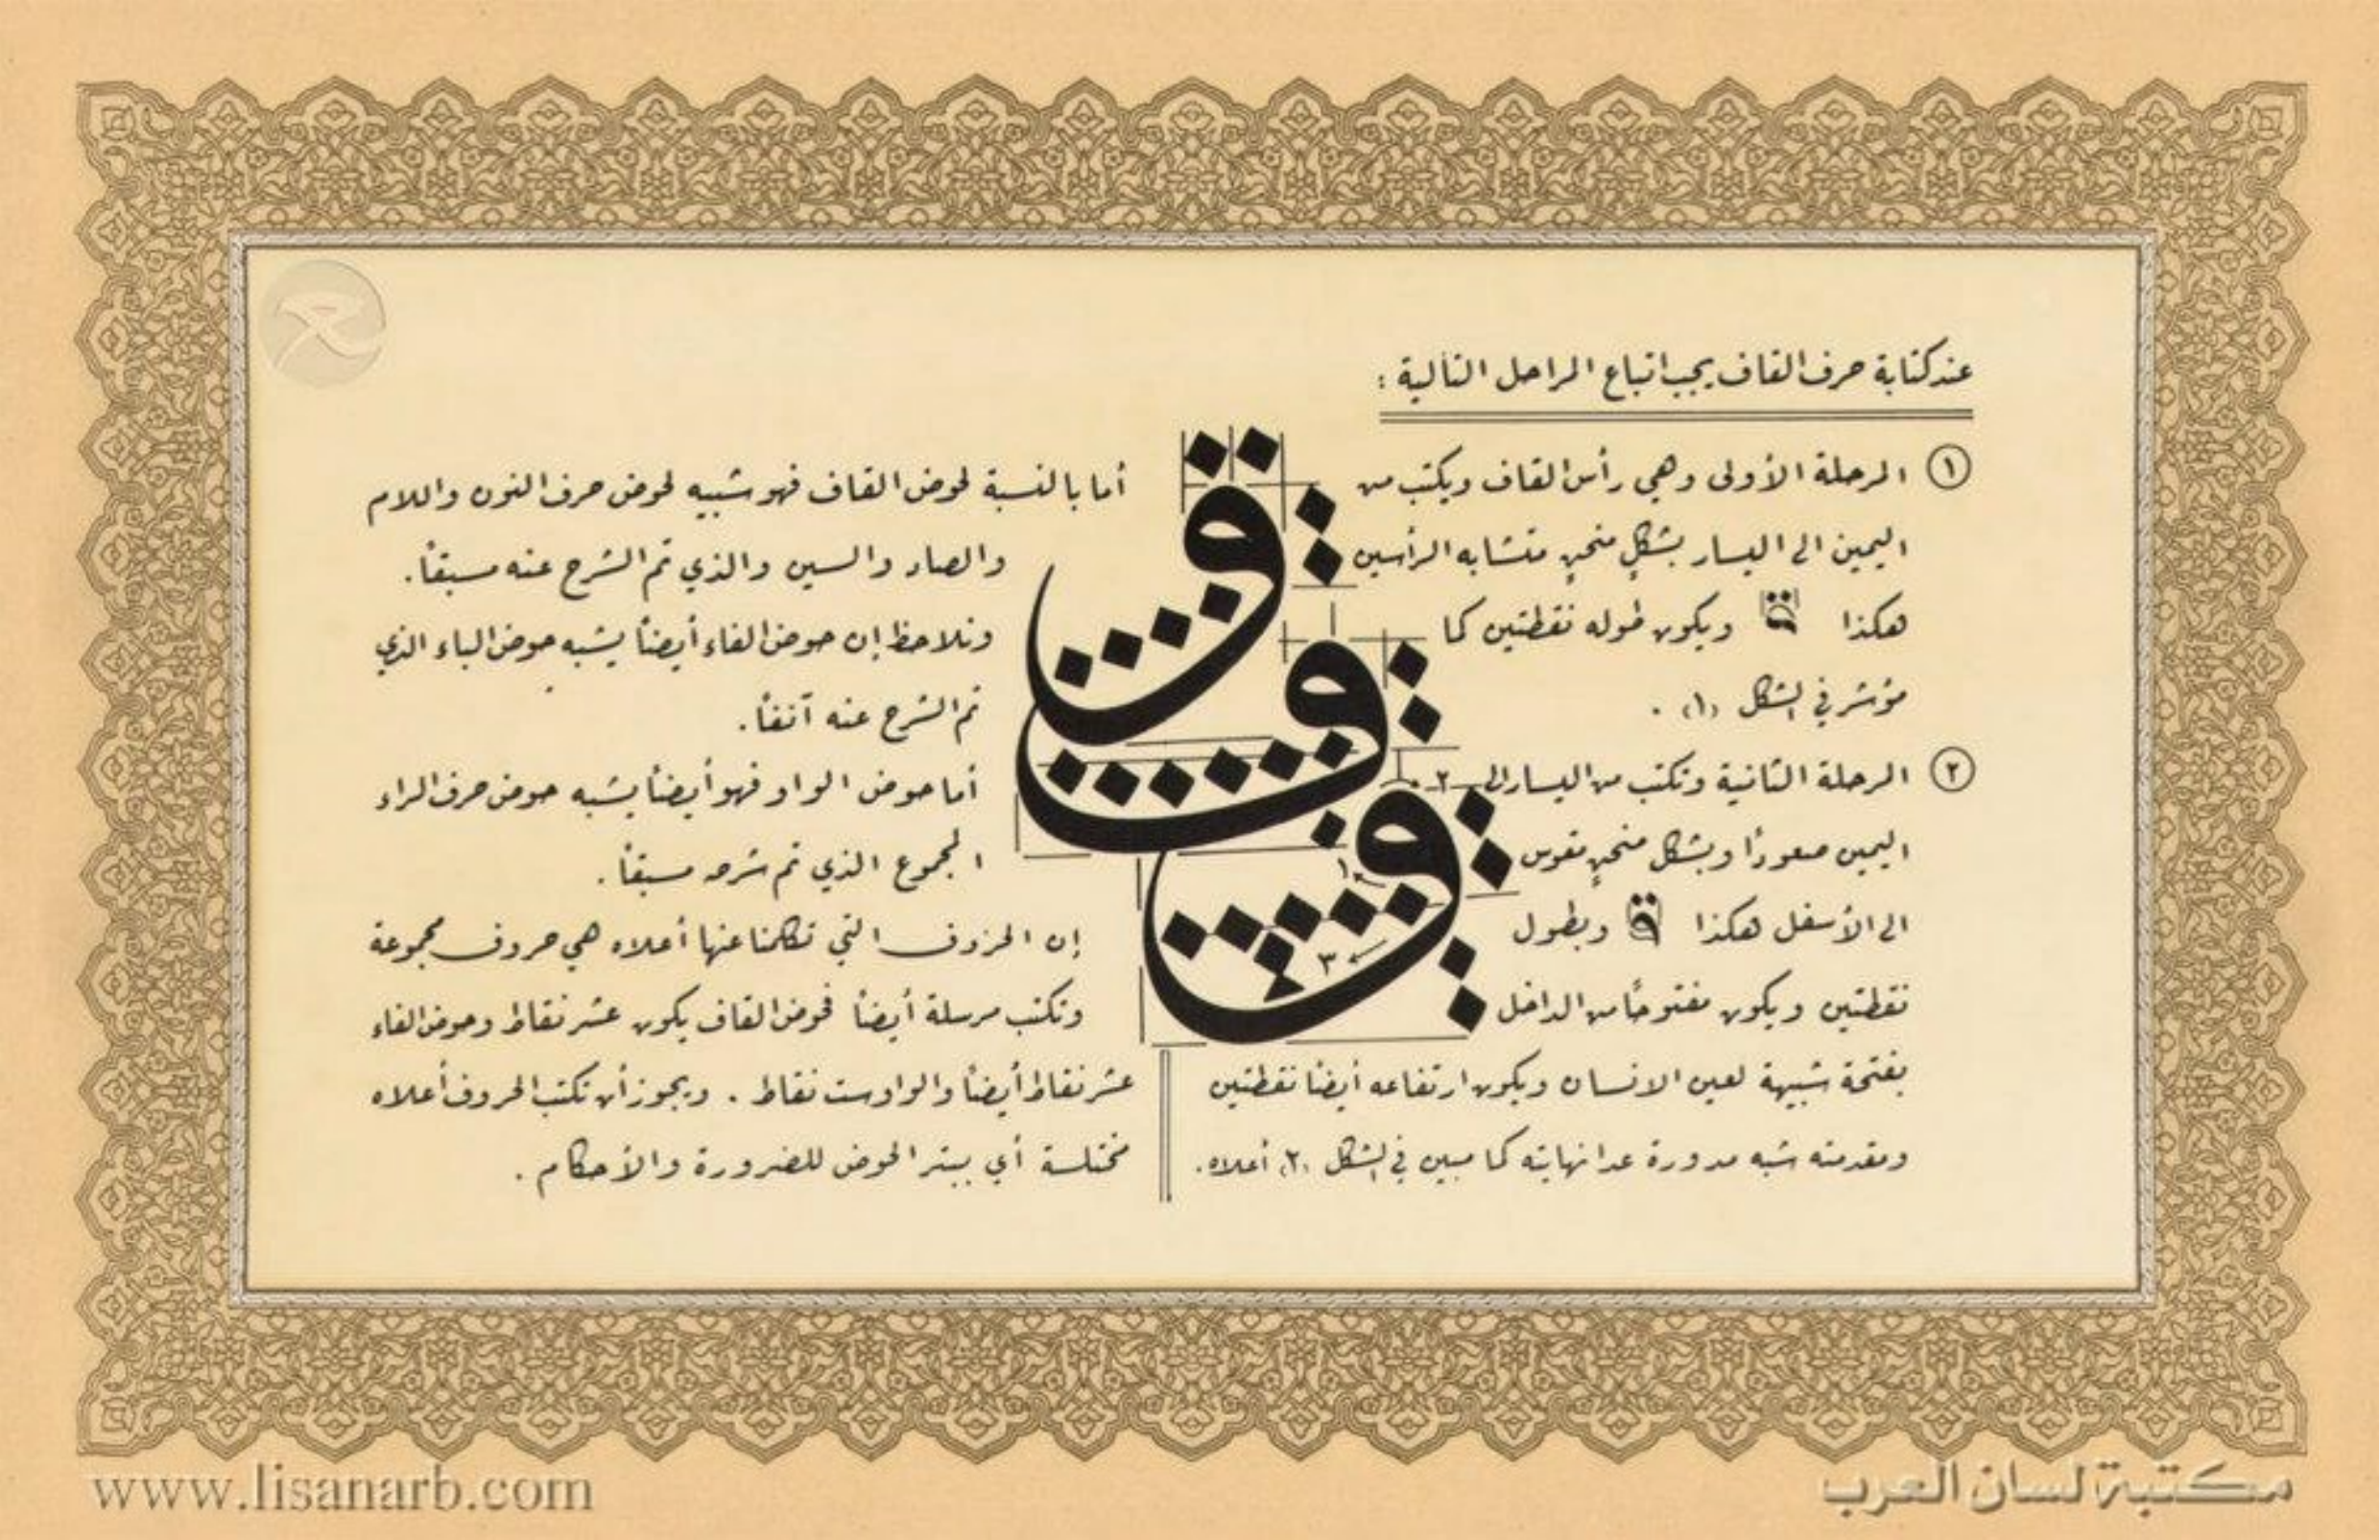 عند كتابة حرف القاف يجب اتباع المراحل التالية :
١ المرحلة الأولى وهي رأس القاف ويكتب من
اليمين الى اليسار بشكلٍ منحنٍ متشابه الرأسين
هكذا ويكون طوله نقطتين كما
مؤشر في الشكل (١) .
٢ المرحلة الثانية وتكتب من اليسار إلى
اليمين صعودًا وبشكل منحنٍ مقوس
الى الأسفل هكذا وبطول
نقطتين ويكون مفتوحًا من الداخل
بفتحة شبيهة لعين الانسان ويكون ارتفاعه أيضًا نقطتين
ومقدمته شبه مدورة عدا نهايته كما مبين في الشكل (٢) أعلاه.
ق
ق
ق
١
٢
٣
أما بالنسبة لحوض القاف فهو شبيه لحوض حرف النون واللام
والصاد والسين والذي تم الشرح عنه مسبقاً.
ونلاحظ إن حوض الفاء أيضاً يشبه حوض الباء الذي
تم الشرح عنه آنفاً.
أما حوض الواو فهو أيضاً يشبه حوض حرف الراء
المجموع الذي تم شرحه مسبقاً.
إن الحروف التي تكلمنا عنها أعلاه هي حروف مجموعة
وتكتب مرسلة أيضاً فحوض القاف يكون عشر نقاط وحوض الفاء
عشر نقاط أيضاً والواو ست نقاط . ويجوز أن تكتب الحروف أعلاه
مختلسة أي ببتر الحوض للضرورة والأحكام .
www.lisanarb.com
مكتبة لسان العرب